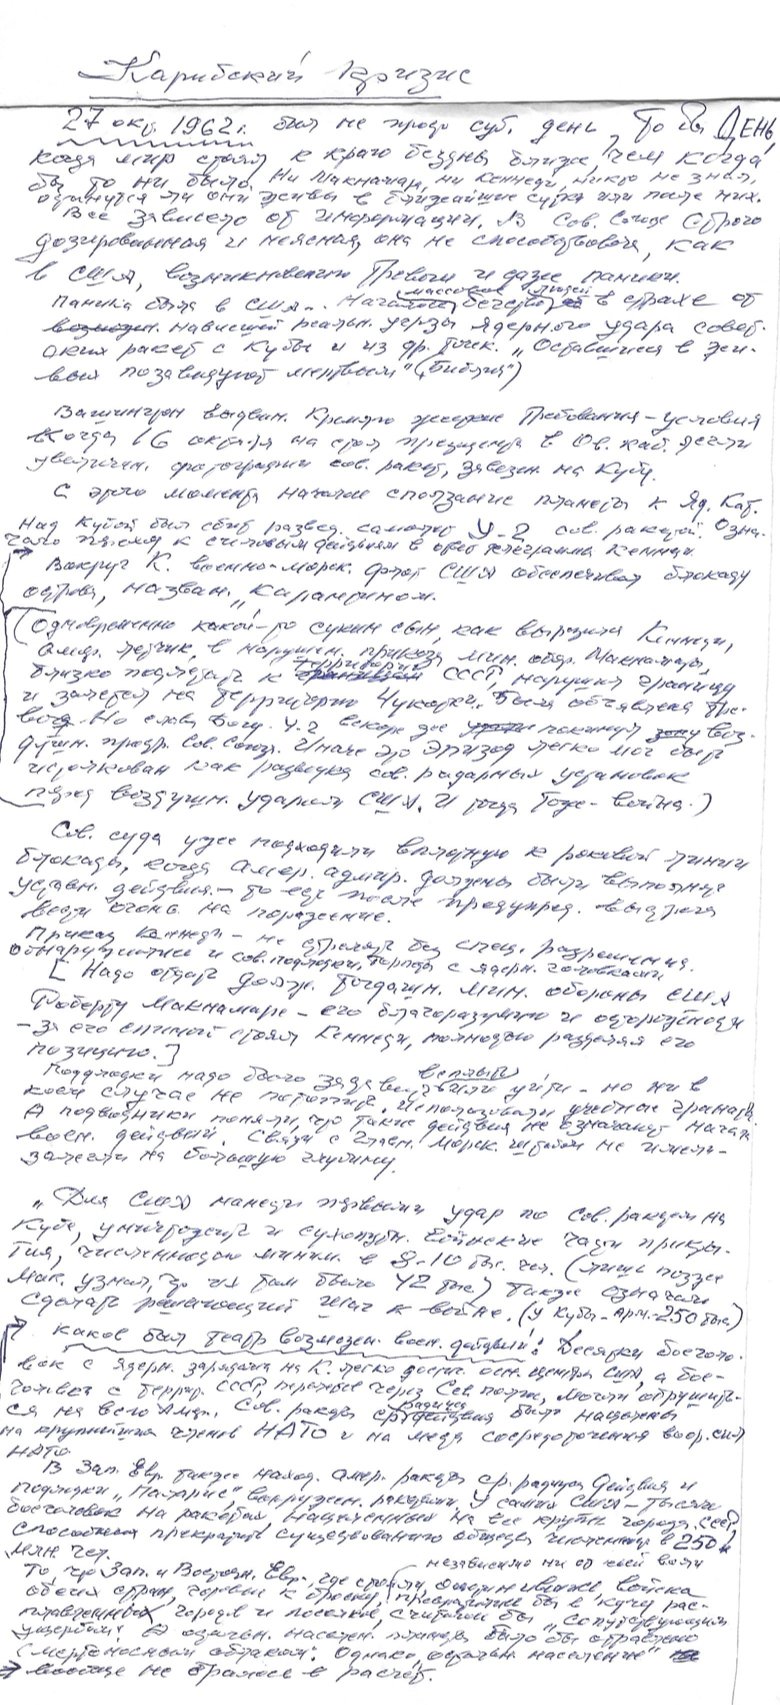 Карибский кризис
27 окт. 1962г. был не просто суб. день, то был День,
когда мир стоял к краю бездны ближе, чем когда
бы то ни было. Ни Макнамара, ни Кеннеди, никто не знал,
очнутся ли они живы в ближайшие сутки или после них.
Всё зависело от информации. В Сов. Союзе строго
дозированная и неясная, она не способствовала, как
в США, возникновению тревоги и даже паники.
Паника была в США. массовое людей
бегство в страхе от
нависшей реальн. угрозы ядерного удара совет-
ских ракет с Кубы и из др. точек. „Оставшиеся в жи-
вых позавидуют мертвым" („Библия")
Вашингтон выдвин. Кремлю жесткие требования - условия
когда 16 октября на стол президента в Ов. каб. легли
увеличен. фотографии сов. ракет, завезен. на Кубу.
С этого момента началось сползание планеты к яд. кат.
Над Кубой был сбит развед. самолет У-2 сов. ракетой. Озна-
чало призыв к действиям в телеграмма Кеннеди.
Вокруг К. военно-морск. флот США обеспечивал блокаду
острова, назван. „карантином.
(Одновременно какой-то сукин сын, как выразился Кеннеди,
амер. летчик, в нарушен. приказа мин. обор. Макнамары,
близко подлетал к территории СССР, нарушил границу
и залетел на территорию Чукотки. Была объявлена тре-
вога. Но слава Богу. У-2 вскоре же покинул воз-
душн. простр. Сов. Союза. Иначе это эпизод легко мог быть
истолкован как разведка сов. радарных установок
перед воздушн. ударом США. И тогда тоже - война.)
Сов. суда уже подходили вплотную к роковой линии
блокады, когда амер. адмир. должны были выполнить
действия - то есть после предупред. выстрела
вести огонь на поражение.
Приказ Кеннеди - не стрелять без спец. разрешения.
Обнаружили и сов. подлодки, торпеды с ядерн. головками
[Надо отдать должн. тогдашн. мин. обороны США
Роберту Макнамаре - его благоразумию и осторожности
- за его спиной стоял Кеннеди, полностью разделяя его
позицию.]
Подлодки надо было всплыть
или уйти - но ни в
коем случае не потопить. Использовали учебные гранаты.
А подводники поняли, что такие действия не означают начала
воен. действий. Связи с Главн. Морск. штабом не имели -
залегли на большую глубину.
„Для США нанести первыми удар по сов. ракетам на
Кубе, уничтожить и сухопутн. воинские части прикры-
тия, численностью миним. в 8-10 тыс. чел. (лишь позже
Мак. узнал, что их там было 42 тыс) также означало
сделать решающий шаг к войне. (У Кубы - арм. - 250 тыс.)
Каков был театр возможн. воен. действий: Десятки боеголо-
вок с ядерн. зарядами на К. легко достиг. осн. центры США, а бое-
головки с террит. СССР, перелетев через Сев. полюс, могли обрушить-
ся на всю Амер. Сов. ракеты ср. радиуса действия были нацелены
на крупнейших членов НАТО и на места сосредоточения воор. сил
НАТО
В Зап. Евр. также наход. амер. ракеты ср. радиуса действия и
подлодки „Поларис", вооружен. ракетами. У самих США - тысячи
боеголовок на ракетах, нацеленных на все крупн. города СССР,
способных прекратить существование общества численностью в 250
млн. чел.
То, что Зап. и Восточн. Евр., где стояли, независимо ни от чьей воли
войска
обеих стран, готовые к броску, превратились бы в кучу рас-
плавленных городов и поселков, считали бы „сопутствующим
ущербом". А населен. планеты было бы отравлено
смертоносным облаком. Однако, остальн. население
вообще не бралось в расчет.